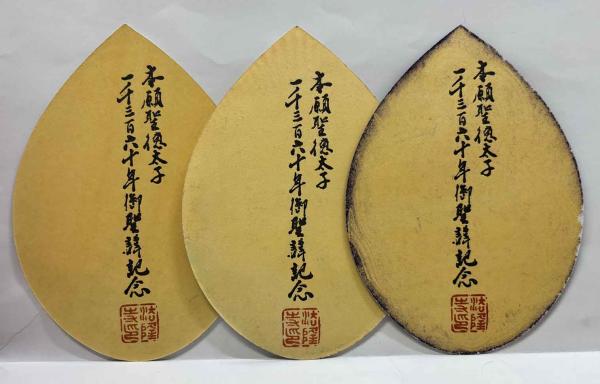 本願聖徳太子
一千三百六十年御聖諱記念
本願聖徳太子
一千三百六十年御聖諱記念
本願聖徳太子
一千三百六十年御聖諱記念